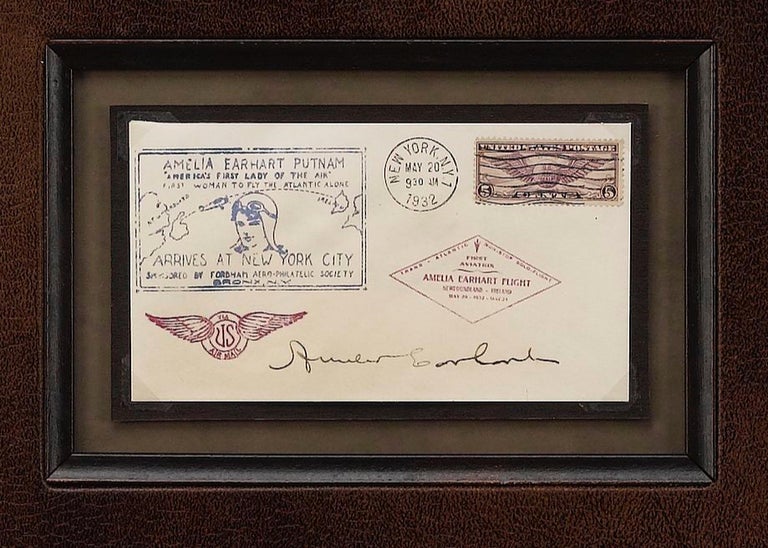 AMELIA EARHART PUTNAM
"AMERICA'S FIRST LADY OF THE AIR"
FIRST WOMAN TO FLY THE ATLANTIC ALONE
ARRIVES AT NEW YORK CITY
SPONSORED BY FORDHAM AERO-PHILATELIC SOCIETY
BRONX, N.Y.
NEW YORK, N.Y. 1
MAY 20
930 AM
1932
UNITED STATES POSTAGE
5 5
TRANS - ATLANTIC NON-STOP SOLO-FLIGHT
FIRST
AVIATRIX
AMELIA EARHART FLIGHT
NEWFOUNDLAND - IRELAND
VIA
US
AIR MAIL
Amelia Earhart